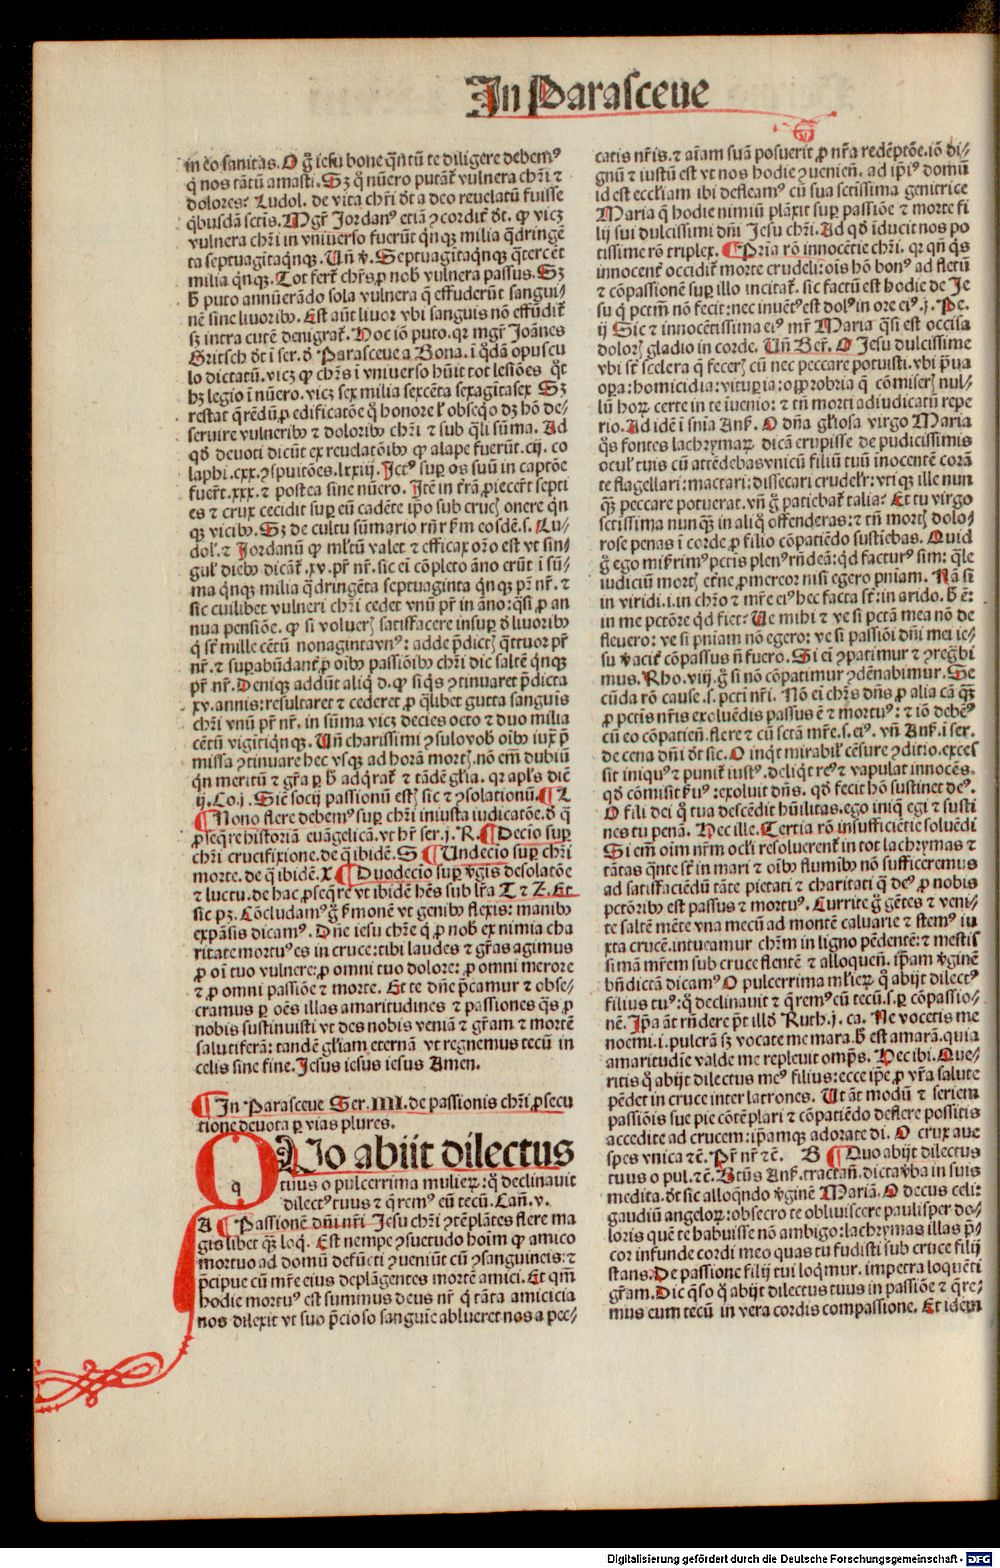 In Parasceue
in eo sanitas. O g̃ iesu bone q̃ntũ te diligere debemꝰ
q̃ nos tãtũ amasti. Sz q̃ nũero putãt᷑ vulnera chr̃i ⁊
dolores? Ludol. de vita chr̃i d̾t a deo reuelatũ fuisse
q̃busdã sctis. Mgr̃ Jordanꝰ etiã ꝯcordit᷑ d̾t. ꝙ vicz
vulnera chr̃i in vniuerso fuerũt q̃nqꝫ milia q̃dringẽ
ta septuagĩtaq̃nqꝫ. Uñ v̾. Septuagĩtaq̃nqꝫ q̃ter cẽt
milia q̃nqꝫ. Tot fert᷑ chr̃s ꝓ nob̾ vulnera passus. Sz
h̾ puto annũerãdo sola vulnera q̃ effuderũt sangui⸗
nẽ sine liuorib⁹. Est aũt liuor vbi sanguis nõ effũdit᷑
sꝫ intra cutẽ denigrat᷑. Hoc iõ puto. qꝛ mgr̃ Joãnes
Gritsch d̾t i ser. d̾ Parasceue a Bona. i q̃dã opuscu
lo dictatũ. vicz ꝙ chr̃s i vniuerso hũit tot lesiões q̃t
hꝫ legio i nũero. vicz sex milia sexcẽta sexagĩtasex Sz
restat q̃rẽdũ ꝓ edificatõe q̃ honore ł obseq̃o dꝫ hõ de⸗
seruire vulnerib⁹ ⁊ dolorib⁹ chr̃i ⁊ sub q̃li sũma. Ad
qd̾ deuoti dicũt ex reuelatõib⁹ ꝙ alape fuerũt. cij. co
laphi. cxx. ꝯspuitões. lxxiij. Jctꝰ suꝑ os suũ in captõe
fuert᷑. xxx. ⁊ postea sine nũero. Jtẽ in t̾rã ꝓiecert᷑ septi
es ⁊ crux cecidit suꝑ eũ cadẽte ip̃o sub crucꝭ onere q̃n
qꝫ vicib⁹. Sz de cultu sũmario rñr k̾m eosdẽ. s. Lu⸗
dol. ⁊ Jordanũ ꝙ ml̾tũ valet ⁊ efficax or̃o est vt sin⸗
gul̾ dieb⁹ dicãt᷑. xv. pr̃ nr̃. sic ei cõpleto ãno erũt i sũ⸗
ma q̃nqꝫ milia q̃dringẽta septuaginta q̃nqꝫ pr̃ nr̃. ⁊
sic cuilibet vulneri chr̃i cedet vnũ pr̃ in ãno: q̃si ꝓ an
nua pensiõe. ꝙ si voluerꝭ satisfacere insuꝑ d̾ liuorib⁹
q̃ st᷑ mille cẽtũ nonagintavnꝰ: adde p̃dictꝭ q̃ttuor pr̃
nr̃. ⁊ suꝑabũdant᷑ ꝓ oĩb⁹ passiõib⁹ chr̃i dic saltẽ q̃nqꝫ
pr̃ nr̃. Deniqꝫ addũt aliq̃ d. ꝙ siq̃s ꝯtinuaret p̃dicta
xv. annis: resultaret ⁊ cederet ꝓ q̃libet gutta sanguis
chr̃i vnũ pr̃ nr̃. in sũma vicz decies octo ⁊ duo milia
cẽtũ vigĩtiq̃nqꝫ. Uñ charissimi ꝯsulo vob̾ oĩb⁹ iuxͭ p̃
missa ꝯtinuare hec vsqꝫ ad horã mortꝭ. nõ em̃ dubiũ
q̃n meritũ ⁊ gr̃a ꝑ h̾ adq̃rat᷑ ⁊ tãdẽ gl̾ia. qꝛ apl̾s diẽ
ij. Co. j. Sicẽ socij passionũ estꝭ sic ⁊ ꝯsolationũ. ¶ L
¶ Nono flere debemꝰ suꝑ chr̃i iniusta iudicatõe. d̾ q̃
ꝓseq̃re historiã euãgelicã. vt hr̃ ser. j. R. ¶ Decio suꝑ
chr̃i crucifixione. de q̃ ibidẽ. S ¶ Undecio suꝑ chr̃i
morte. de q̃ ibidẽ. X ¶ Duodecio suꝑ v̾gis desolatõe
⁊ luctu. de hac ꝓseq̃re vt ibidẽ hẽs sub lr̃a T ⁊ Z. Et
sic pꝫ. Cõcludamꝰ g̃ k̾monẽ vt genib⁹ flexis: manib⁹
expãsis dicamꝰ. Dñe iesu chr̃e q̃ ꝓ nob̾ ex nimia cha
ritate mortuꝰ es in cruce: tibi laudes ⁊ gr̃as agimus
ꝓ oĩ tuo vulnere: ꝓ omni tuo dolore: ꝓ omni merore
⁊ ꝓ omni passiõe ⁊ morte. Et te dñe p̃camur ⁊ obse⸗
cramus ꝑ oẽs illas amaritudines ⁊ passiones q̃s ꝓ
nobis sustinuisti vt des nobis veniã ⁊ gr̃am ⁊ mortẽ
salutiferã: tandẽ gl̾iam eternã vt regnemus tecũ in
celis sine fine. Jesus iesus iesus Amen.
¶ In Parasceue Ser. IIII. de passionis chr̃i ꝓsecu
tione deuota ꝑ vias plures.
QUo abijt dilectus
q
tuus o pulcerrima mulierꝝ: q̃ declinauit
dilectꝰ tuus ⁊ q̃remꝰ eũ tecũ. Cañ. v.
A ¶ Passionẽ dñi nr̃i Jesu chr̃i ꝯtẽplãtes flere ma
gis libet qꝫ̃ loq̃. Est nempe ꝯsuetudo hoim ꝙ amico
mortuo ad domũ defũcti ꝯueniũt cũ ꝯsanguineis: ⁊
p̃cipue cũ mr̃e eius deplãgentes mortẽ amici. Et qm̃
hodie mortuꝰ est summus deus nr̃ q̃ tãta amicicia
nos dilexit vt suo p̃cioso sanguĩe ablueret nos a pec⸗
catis nr̃is. ⁊ aĩam suã posuerit ꝓ nr̃a redẽptõe. iõ di⸗
gnũ ⁊ iustũ est vt nos hodie ꝯuenieñ. ad ip̃iꝰ domũ
id est eccl̾iam ibi defleamꝰ cũ sua sctissima genitrice
Maria q̃ hodie nimiũ plãxit suꝑ passiõe ⁊ morte fi
lij sui dulcissimi dñi Jesu chr̃i. Ad qd̾ iducit nos po
tissime rõ triplex. ¶ Pria rõ innocẽtie chr̃i. qꝛ qñ q̃s
innocent᷑ occidit᷑ morte crudeli: oĩs hõ bonꝰ ad fletũ
⁊ cõpassionẽ suꝑ illo incitat᷑. sic factũ est hodie de Je
su q̃ pctm̃ nõ fecit: nec inuẽtꝰ est dolꝰ in ore eiꝰ. j. Pe.
ij Sic ⁊ innocẽtissima eiꝰ mr̃ Maria q̃si est occisa
dolorꝭ gladio in corde. Uñ Ber̃. O Jesu dulcissime
vbi st᷑ scelera q̃ fecerꝭ cũ nec peccare potuisti. vbi p̃ua
oꝑa: homicidia: vituꝑia: opꝓbria q̃ cõmiserꝭ nul⸗
lũ horꝝ certe in te iuenio: ⁊ tñ morti adiudicatũ repe
rio. Ad idẽ i snĩa Ans̃. O dña gl̾iosa virgo Maria
q̃s fontes lachrymarꝝ dicã erupisse de pudicissimis
ocul̾ tuis cũ attẽdebas vnicũ filiũ tuũ inocentẽ corã
te flagellari: mactari: dissecari crudel̾r: vti qꝫ ille nun
qꝫ̃ peccare potuerat. vñ g̃ patiebat᷑ talia? Et tu virgo
sctissima nunqꝫ̃ in aliq̃ offenderas: ⁊ tñ mortꝭ dolo⸗
rose penas i corde ꝓ filio cõpatiẽdo sustiebas. Quid
g̃ ego mis᷑rimꝰ pctis plenꝰ rñdeã: qd̾ facturꝰ sim: q̃le
iudiciũ mortꝭ et̾ne ꝓmereor nisi egero pñiam. Nã si
in viridi. i. in chr̃o ⁊ mr̃e eiꝰ hec facta st᷑: in arido. h̾ ẽ:
in me pctõre qd̾ fiet? Ue mihi ⁊ ve si pctã mea nõ de
fleuero: ve si pñiam nõ egero: ve si passiõi dñi mei ie⸗
su v̾acit᷑ cõpassus ñ fuero. Si ei ꝯpatimur ⁊ ꝯregn̾bi
mus. Rho. viij. g̃ si nõ cõpatimur ꝯdẽnabimur. Se
cũda rõ cause. s. pcti nr̃i. Nõ ei chr̃s dñs ꝓ alia cã qꝫ̃
ꝓ pctis nr̃is exoluẽdis passus ẽ ⁊ mortuꝰ: ⁊ iõ debẽꝰ
cũ eo cõpatieñ. flere ⁊ cũ sctã mr̃e. s. eiꝰ. vñ Ans̃. i ser.
de cena dñi d̾t sic. O inq̃t mirabil̾ cẽsure ꝯditio. exces
sit iniquꝰ ⁊ punit᷑ iustꝰ. deliq̃t reꝰ ⁊ vapulat innocẽs.
qd̾ cõmisit s᷑uꝰ: exoluit dñs. qd̾ fecit hõ sustinet deꝰ.
O fili dei q̃ tua descẽdit hũilitas. ego iniq̃ egi ⁊ susti
nes tu penã. Hec ille. Tertia rõ insufficiẽtie soluẽdi
Si em̃ oĩm nr̃m ocl̾i resoluerent᷑ in tot lachrymas ⁊
tãtas q̃nte st᷑ in mari ⁊ oĩb⁹ flumĩb⁹ nõ sufficeremus
ad satisfaciẽdũ tãte pietati ⁊ charitati q̃ deꝰ ꝓ nobis
pctõrib⁹ est passus ⁊ mortuꝰ. Currite g̃ gẽtes ⁊ veni⸗
te saltẽ mẽte vna mecũ ad montẽ caluarie ⁊ stemꝰ iu
xta crucẽ. intueamur chr̃m in ligno pẽdentẽ: ⁊ mestis
simã mr̃em sub cruce flentẽ ⁊ alloqueñ. ip̃am v̾ginẽ
bñdictã dicamꝰ O pulcerrima ml̾ierꝝ q̃ abijt dilectꝰ
filius tuꝰ: q̃ declinauit ⁊ q̃remꝰ eũ tecũ. s. ꝑ cõpassio⸗
nẽ. Jp̃a ãt rñdere p̃t illd̾ Ruth. j. ca. Ne vocetis me
noemi. i. pulcrã sꝫ vocate me mara. h̾ est amarã. quia
amaritudĩe valde me repleuit omp̃s. Hec ibi. Que⸗
ritis q̃ abijt dilectus meꝰ filius: ecce ip̃e ꝓ vr̃a salute
pẽdet in cruce inter latrones. Ut ãt modũ ⁊ seriem
passiõis sue pie cõtẽplari ⁊ cõpatiẽdo deflere possitis
accedite ad crucem: ip̃amqꝫ adorate di. O crux aue
spes vnica ⁊c̃. Pr̃ nr̃ ⁊c̃. B ¶ Quo abijt dilectus
tuus o pul. ⁊c̃. Bt̾us Ans̃. tractañ. dicta v̾ba in suis
medita. d̾t sic alloq̃ndo v̾ginẽ Mariã. O decus celi:
gaudiũ angelorꝝ: obsecro te obliuiscere paulisper do⸗
loris quẽ te habuisse nõ ambigo: lachrymas illas p̃⸗
cor infunde cordi meo quas tu fudisti sub cruce filij
stans. De passione filij tui loq̃mur. impetra loquẽti
gr̃am. Dic q̃so q̃ abijt dilectus tuus in passiõe ⁊ q̃re⸗
mus eum tecũ in vera cordis compassione. Et idem
Digitalisierung gefördert durch die Deutsche Forschungsgemeinschaft - DFG